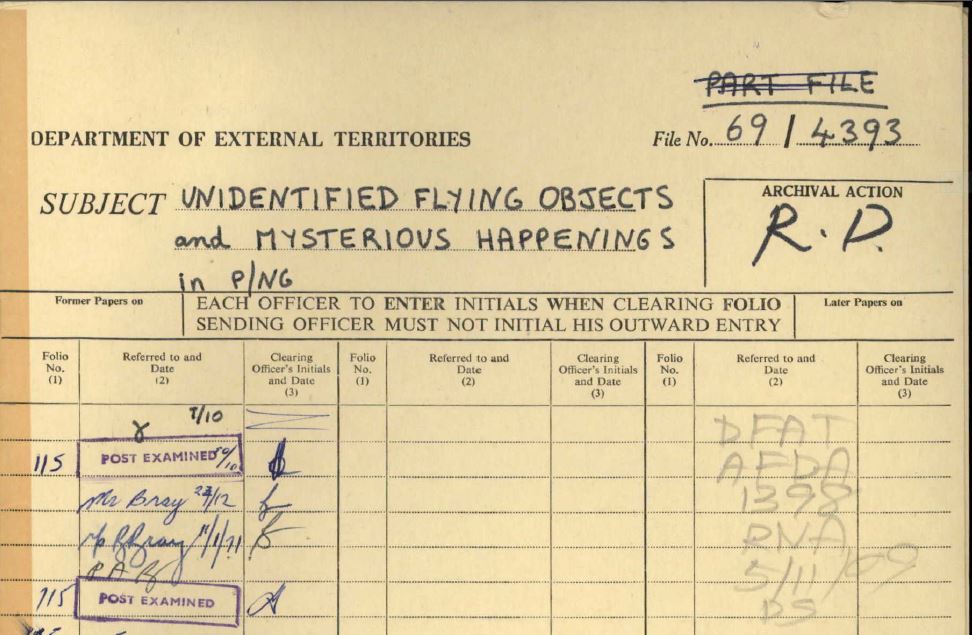 PART FILE
DEPARTMENT OF EXTERNAL TERRITORIES
File No. 69/4393
SUBJECT UNIDENTIFIED FLYING OBJECTS
and MYSTERIOUS HAPPENINGS
in P/NG
ARCHIVAL ACTION
R.D.
Former Papers on
EACH OFFICER TO ENTER INITIALS WHEN CLEARING FOLIO
SENDING OFFICER MUST NOT INITIAL HIS OUTWARD ENTRY
Later Papers on
Folio No. (1) Referred to and Date (2) Clearing Officer's Initials and Date (3) Folio No. (1) Referred to and Date (2) Clearing Officer's Initials and Date (3) Folio No. (1) Referred to and Date (2) Clearing Officer's Initials and Date (3)
7/10
115 POST EXAMINED
Mr Bray 23/12
Bray 11/1/71
115 POST EXAMINED
DFAT
AFDA
1398
PNA
5/11/09
DS